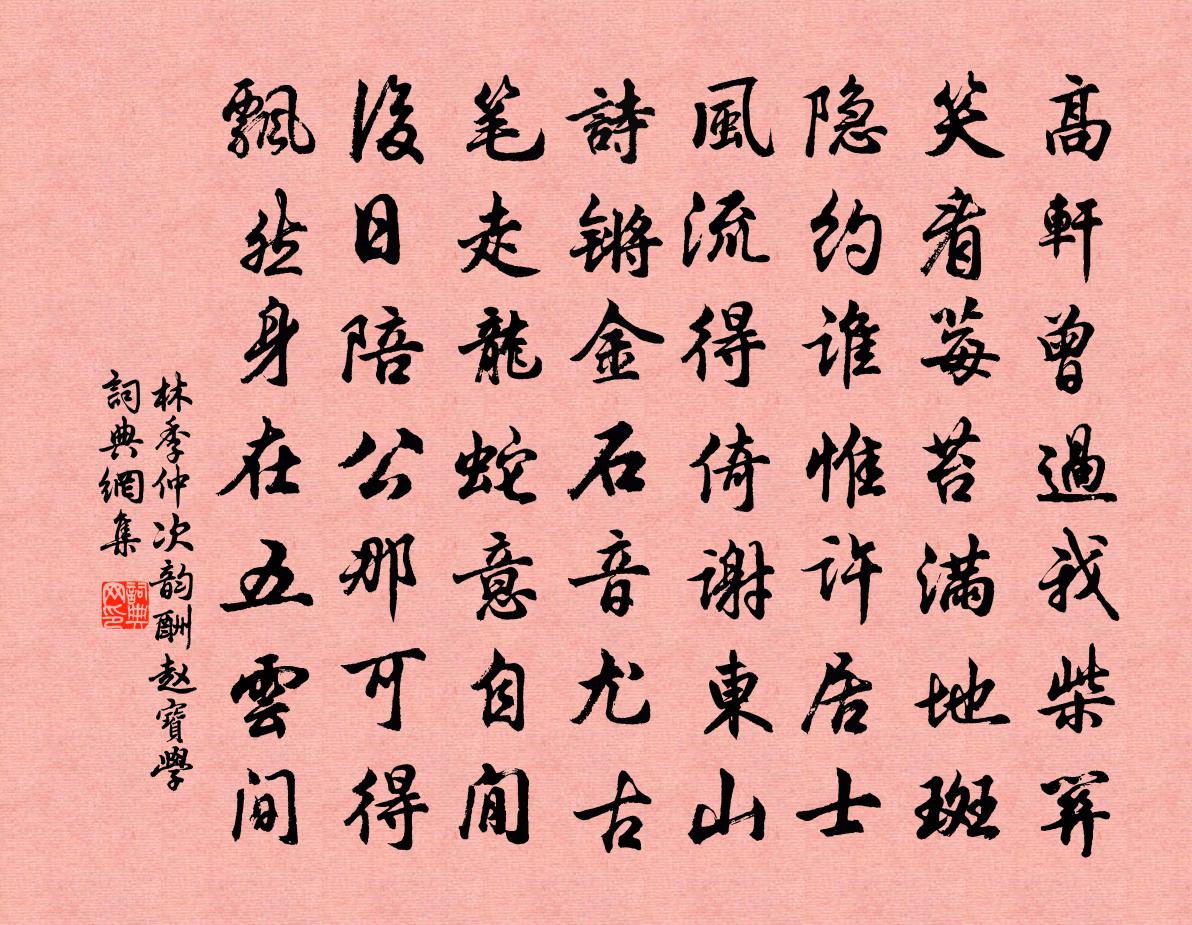 高軒曾過我柴關
笑看莓苔滿地斑
隐約誰惟許居士
風流得倚謝東山
詩鏘金石音尤古
笔走龍蛇意自閒
後日陪公那可得
飄然身在五雲間
林季仲次韵酬赵寶學
詞典網集
詞典网印